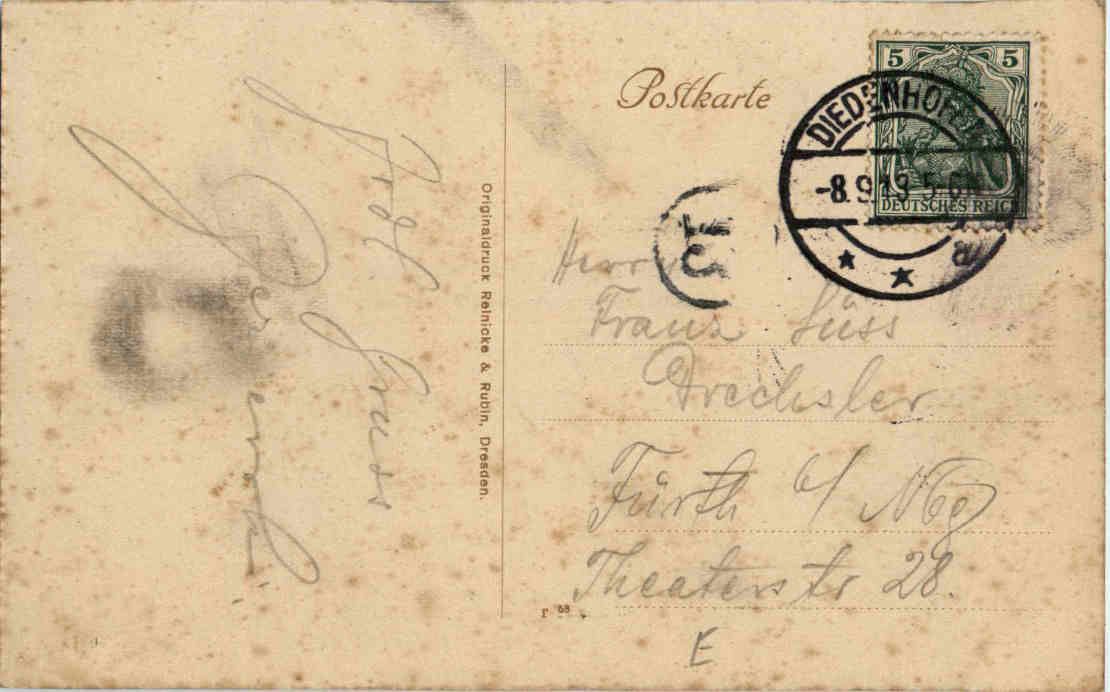 Postkarte
5 5
DEUTSCHES REICH
DIEDENHOFEN
-8.9.13.5-6
a
Herrn
Franz Süss
Drechsler
Fürth b/ Nbg
Theaterstr 28.
E
Originaldruck Reinicke & Rubin, Dresden.
68
Gruss